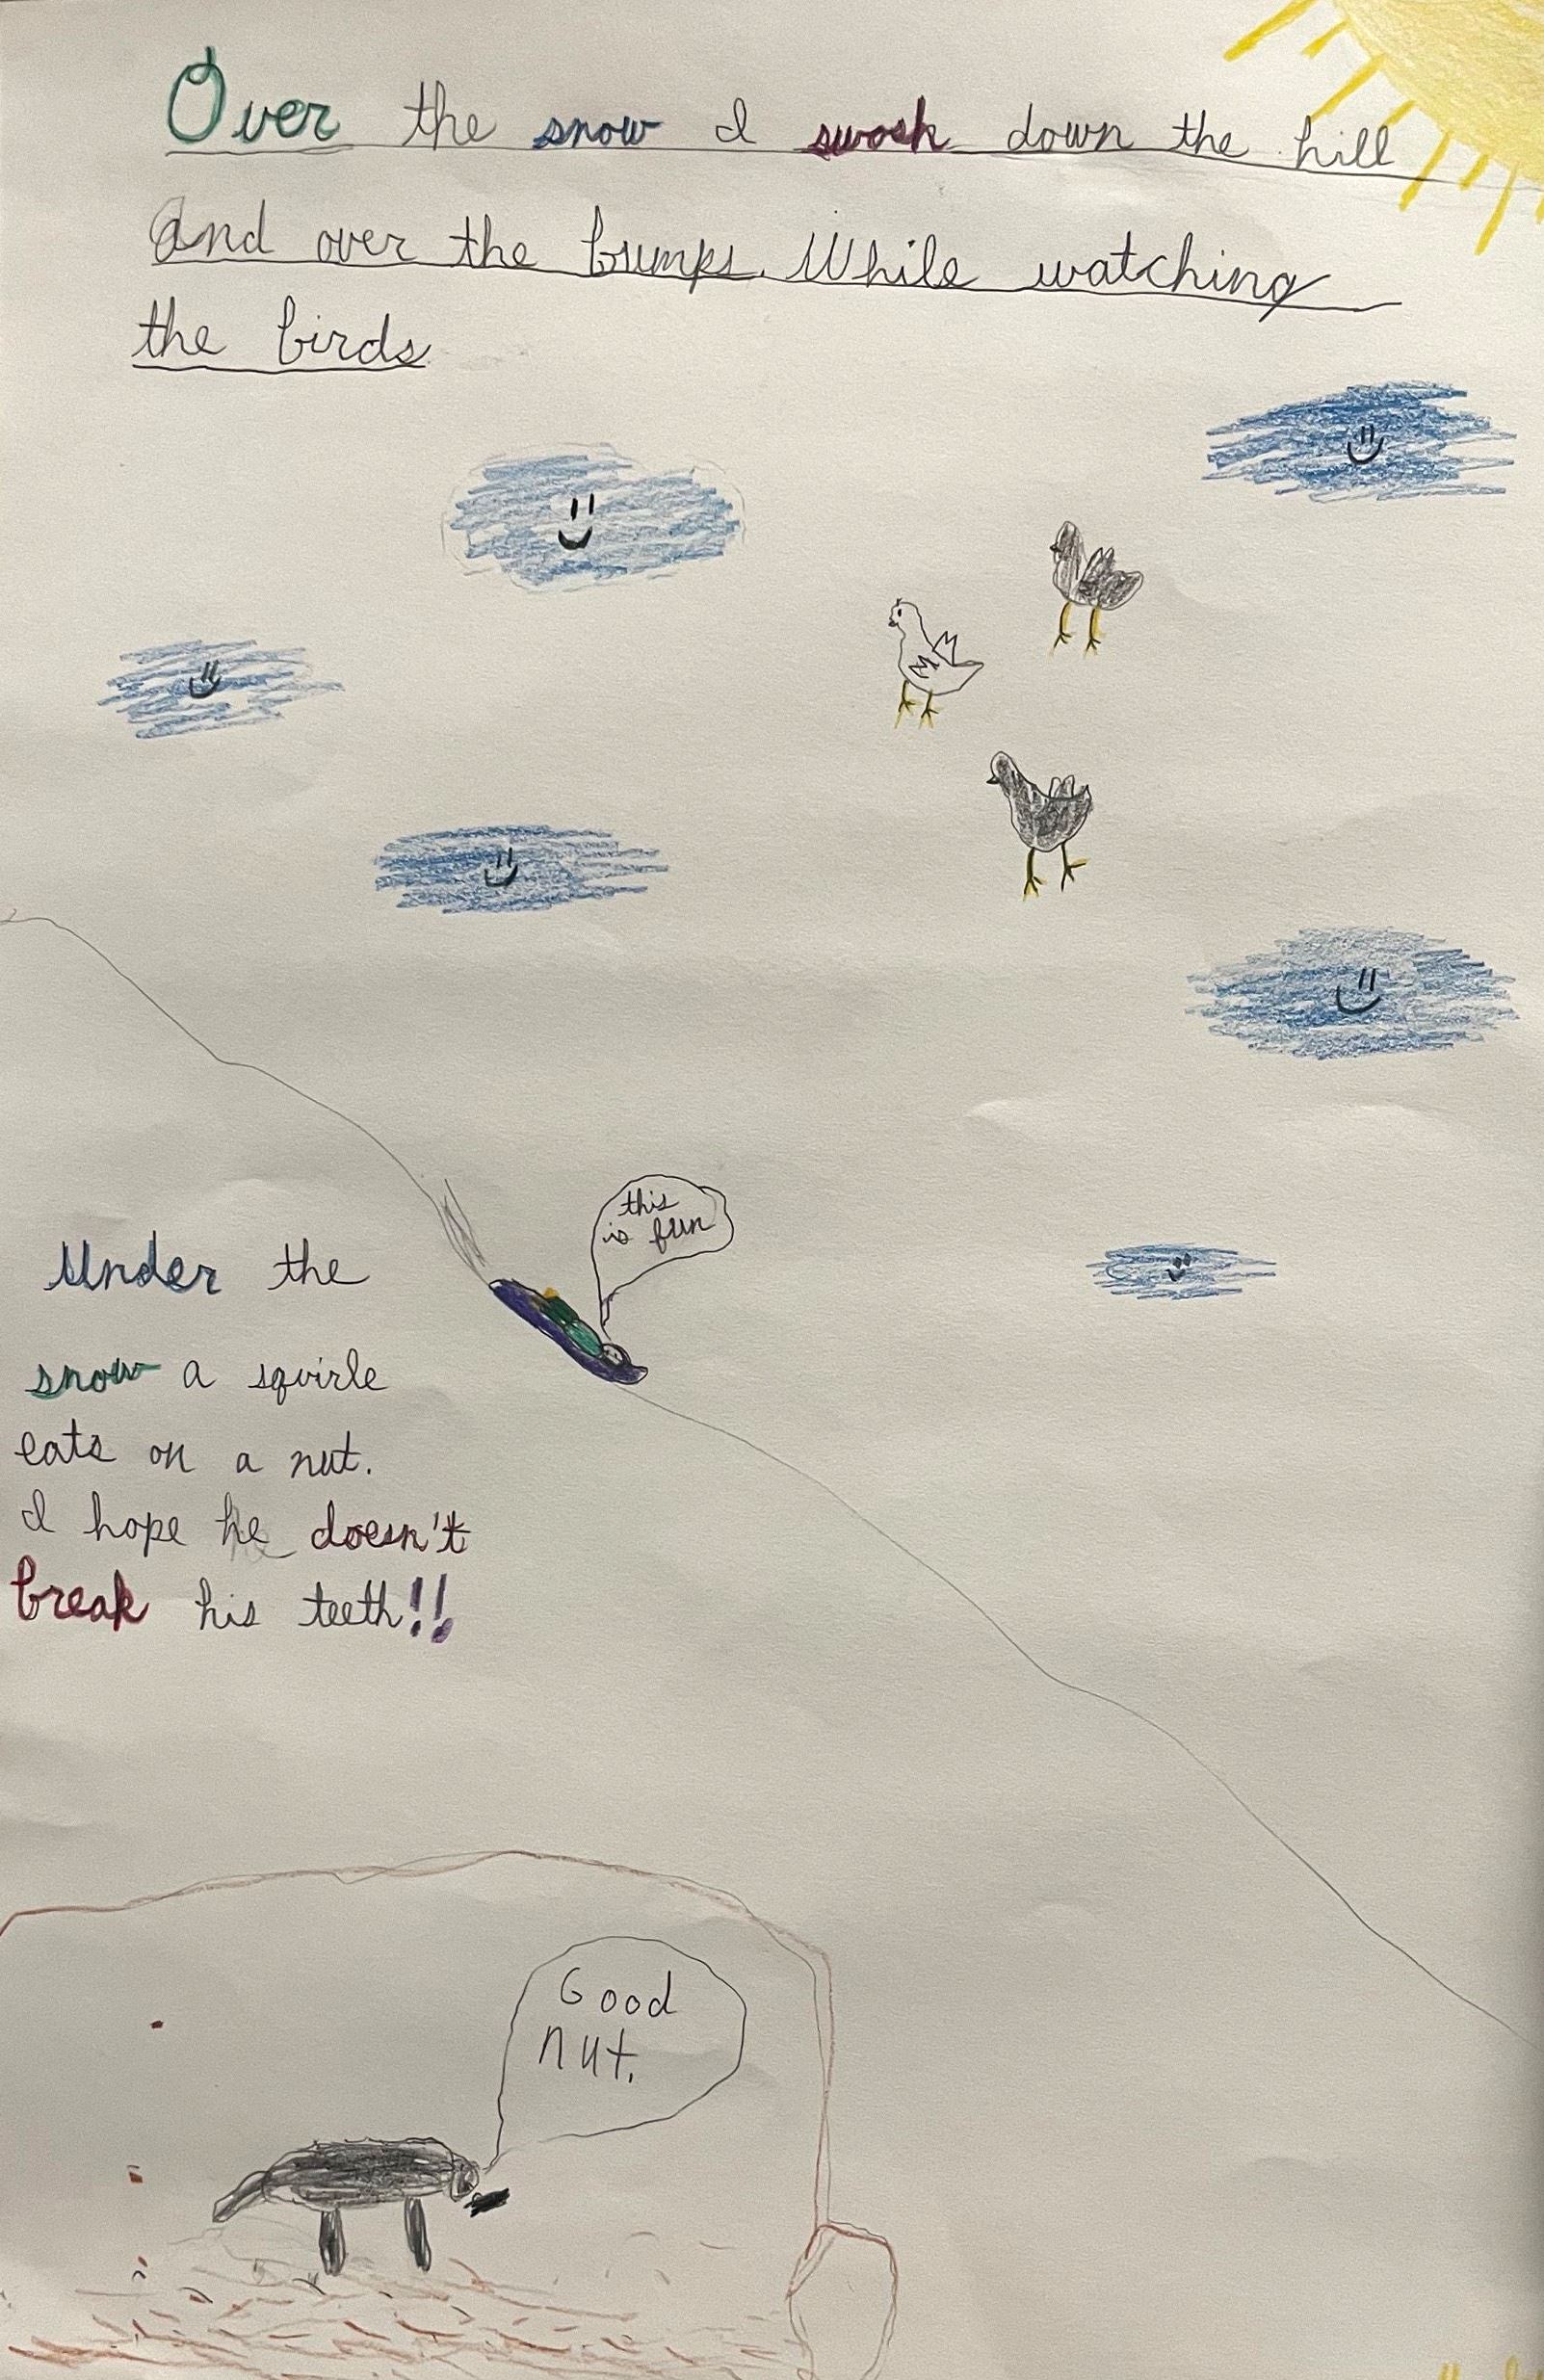 Over the snow I swosh down the hill
and over the bumps. While watching
the birds
this
is fun
Under the
snow a squirle
eats on a nut.
I hope he doesn't
break his teeth!!
Good
nut.